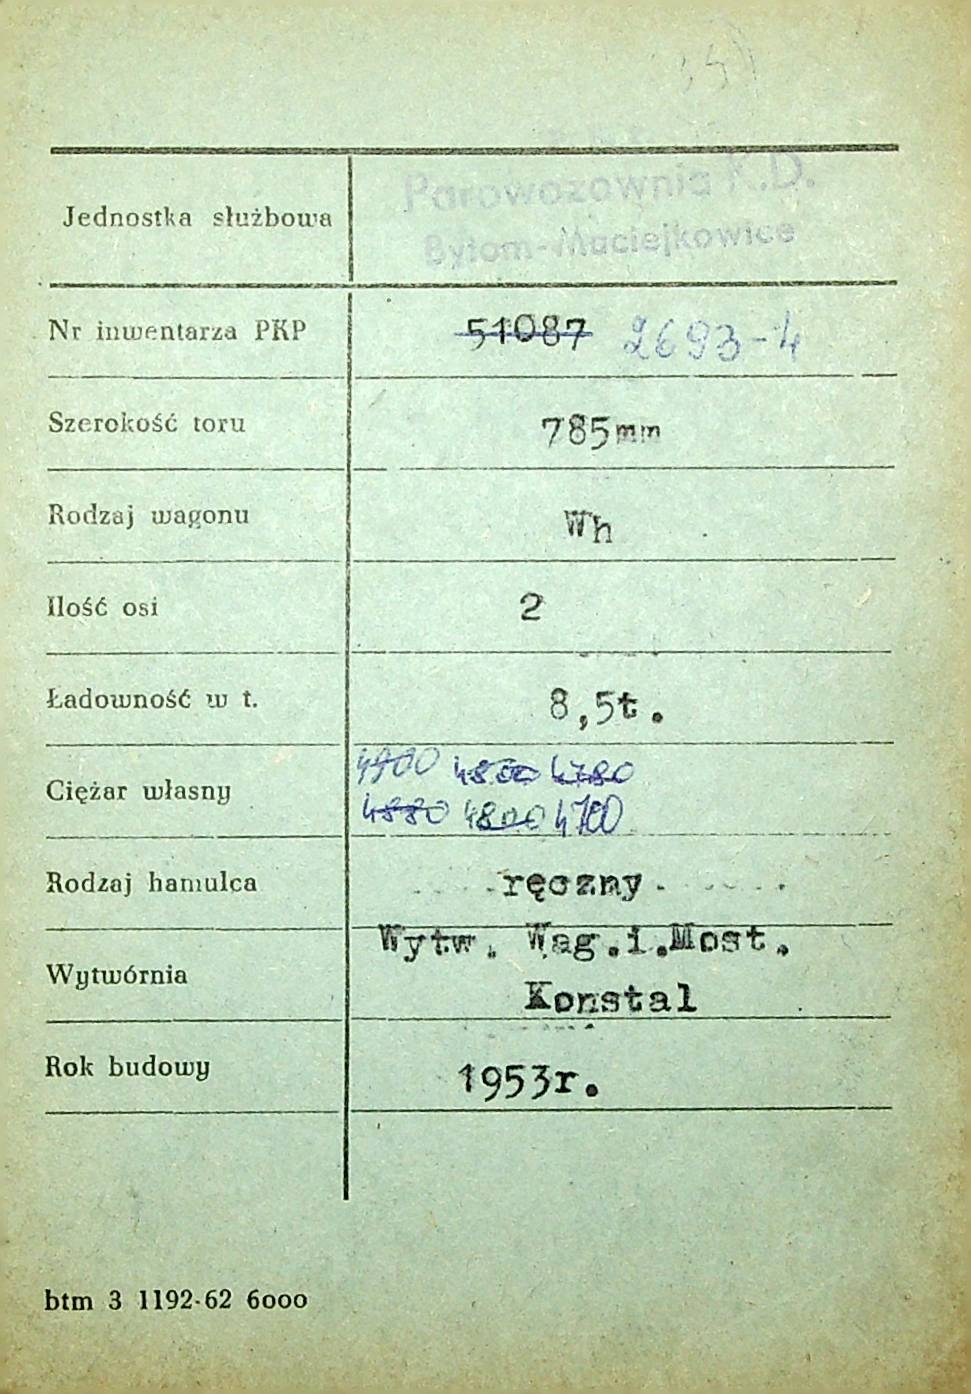 Jednostka służbowa
Parowozownia K.D.
Bytom-Maciejkowice
Nr inwentarza PKP 51087 2693-4
Szerokość toru 785mm
Rodzaj wagonu Wh
Ilość osi 2
Ładowność w t. 8,5t.
4900 4850 4780
Ciężar własny
4880 4800 4700
Rodzaj hamulca ręczny
Wytw. Wag.i.Most.
Wytwórnia
Konstal
Rok budowy 1953r.
btm 3 1192-62 6000